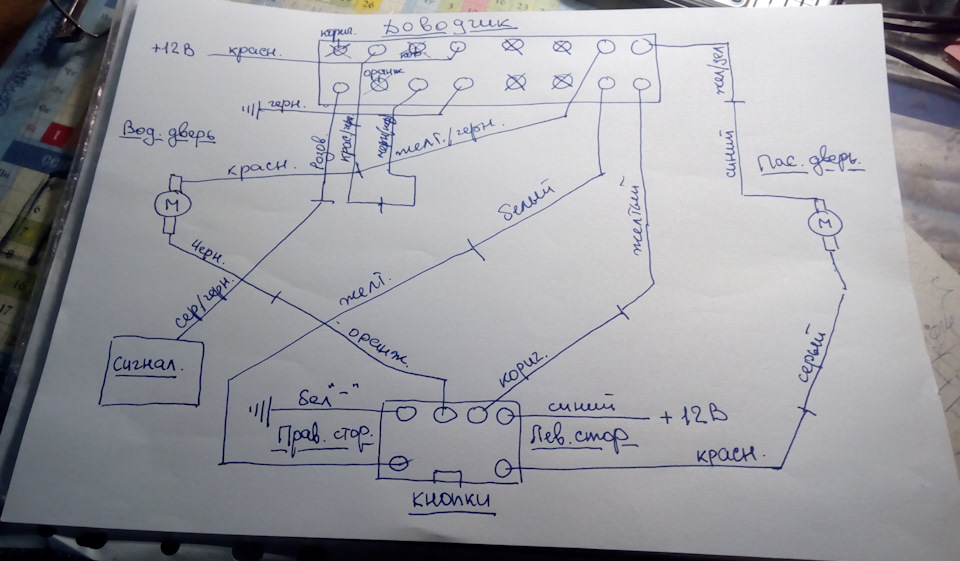 Доводчик
кориг.
+12В красн.
кор.
оранж
черн.
Вод. дверь
розов
крас/чер
желт./черн.
жел/зел
синий
Пас. дверь.
красн.
М
белый
желтый
М
черн.
желт.
сер/черн.
оранж.
кориг.
серый
Сигнал.
бел "-"
синий
+12В
Прав. стор.
Лев. стор
красн.
Кнопки